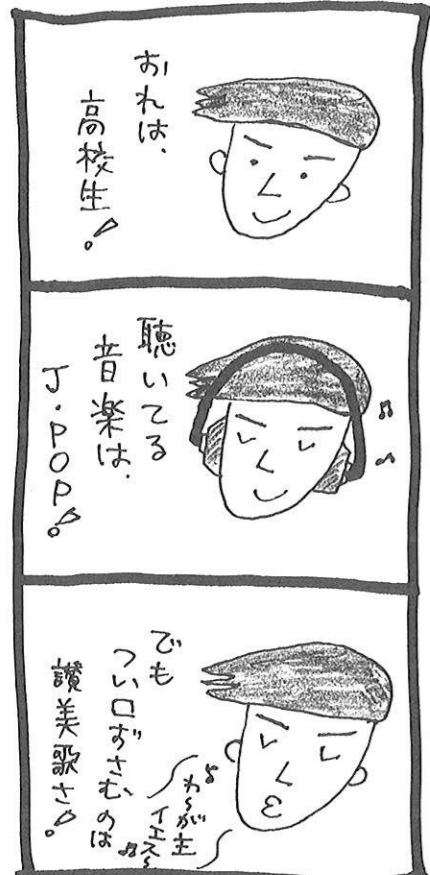 おれは、
高校生!
聴いてる
音楽は、
J・POP!
でも
つい口ずさむのは
讃美歌さ!
わ〜が主
イエス〜